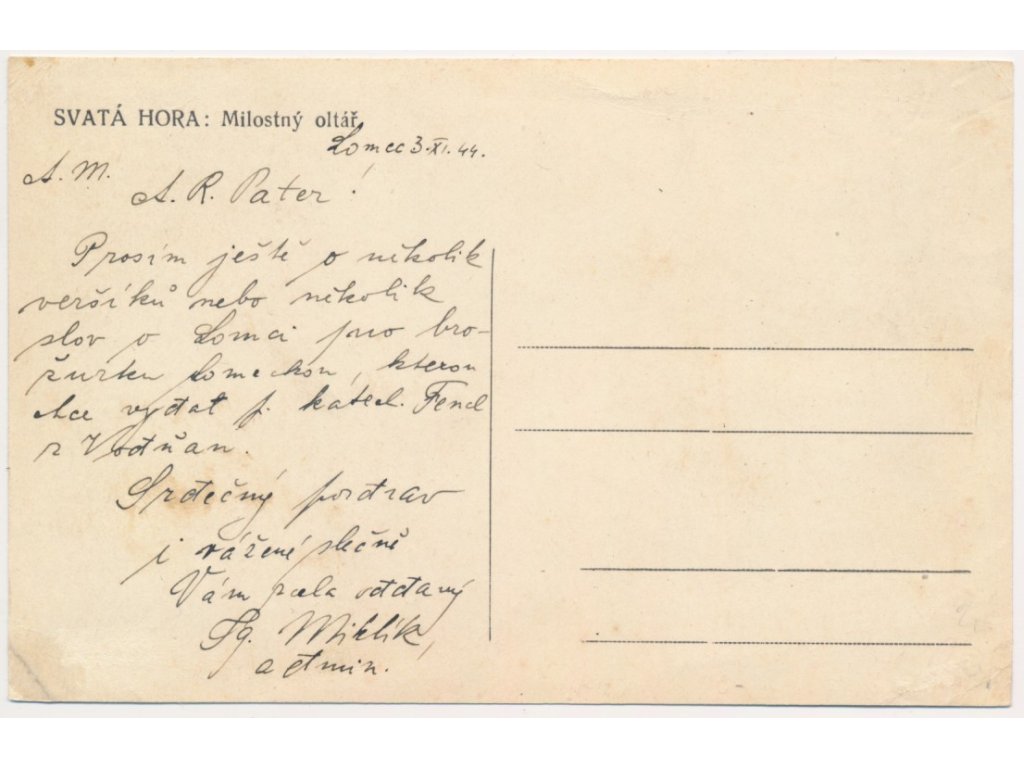 SVATÁ HORA: Milostný oltář.
Lomec 3.XI.44.
A. M.
A. R. Pater!
Prosím ještě o několik
veršíků nebo několik
slov o Lomci pro bro-
žurku Lomeckou, kterou
chce vydat p. katech. Fencl
z Vodňan.
Srdečný pozdrav
i vážené slečně
Vám zcela oddaný
Ig. Miklík,
admin.